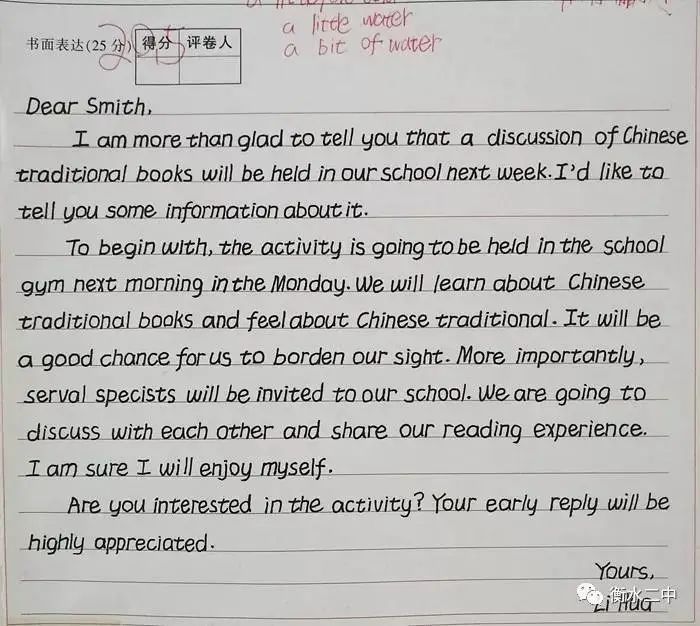 a little water
a bit of water
书面表达(25 分) 得分 评卷人
20.5
Dear Smith,
I am more than glad to tell you that a discussion of Chinese
traditional books will be held in our school next week. I'd like to
tell you some information about it.
To begin with, the activity is going to be held in the school
gym next morning in the Monday. We will learn about Chinese
traditional books and feel about Chinese traditional. It will be
a good chance for us to borden our sight. More importantly,
serval specists will be invited to our school. We are going to
discuss with each other and share our reading experience.
I am sure I will enjoy myself.
Are you interested in the activity? Your early reply will be
highly appreciated.
Yours,
Li Hua
衡水二中